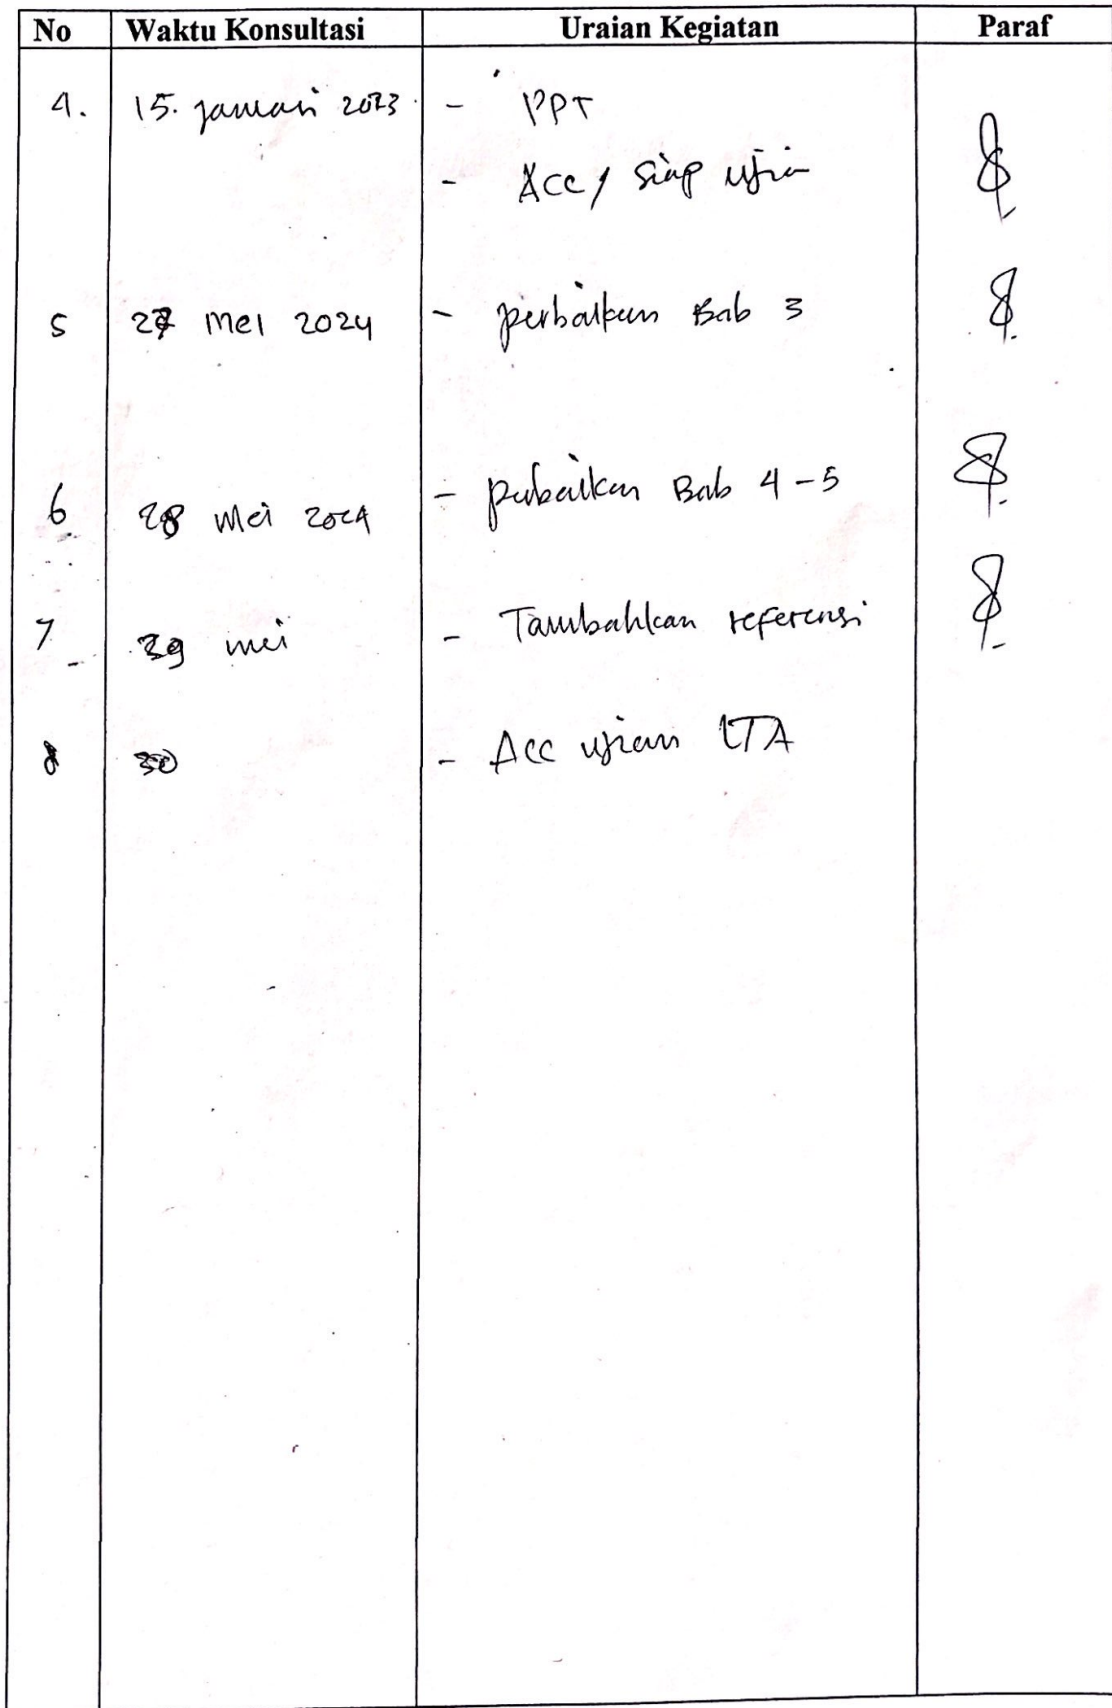 No Waktu Konsultasi Uraian Kegiatan Paraf
4. 15. Januari 2023 - PPT
- Acc / Siap ujian
5 27 Mei 2024 - perbaikan Bab 3
6. 28 Mei 2024 - perbaikan Bab 4-5
7 29 mei - Tambahkan referensi
8 30 - Acc ujian LTA